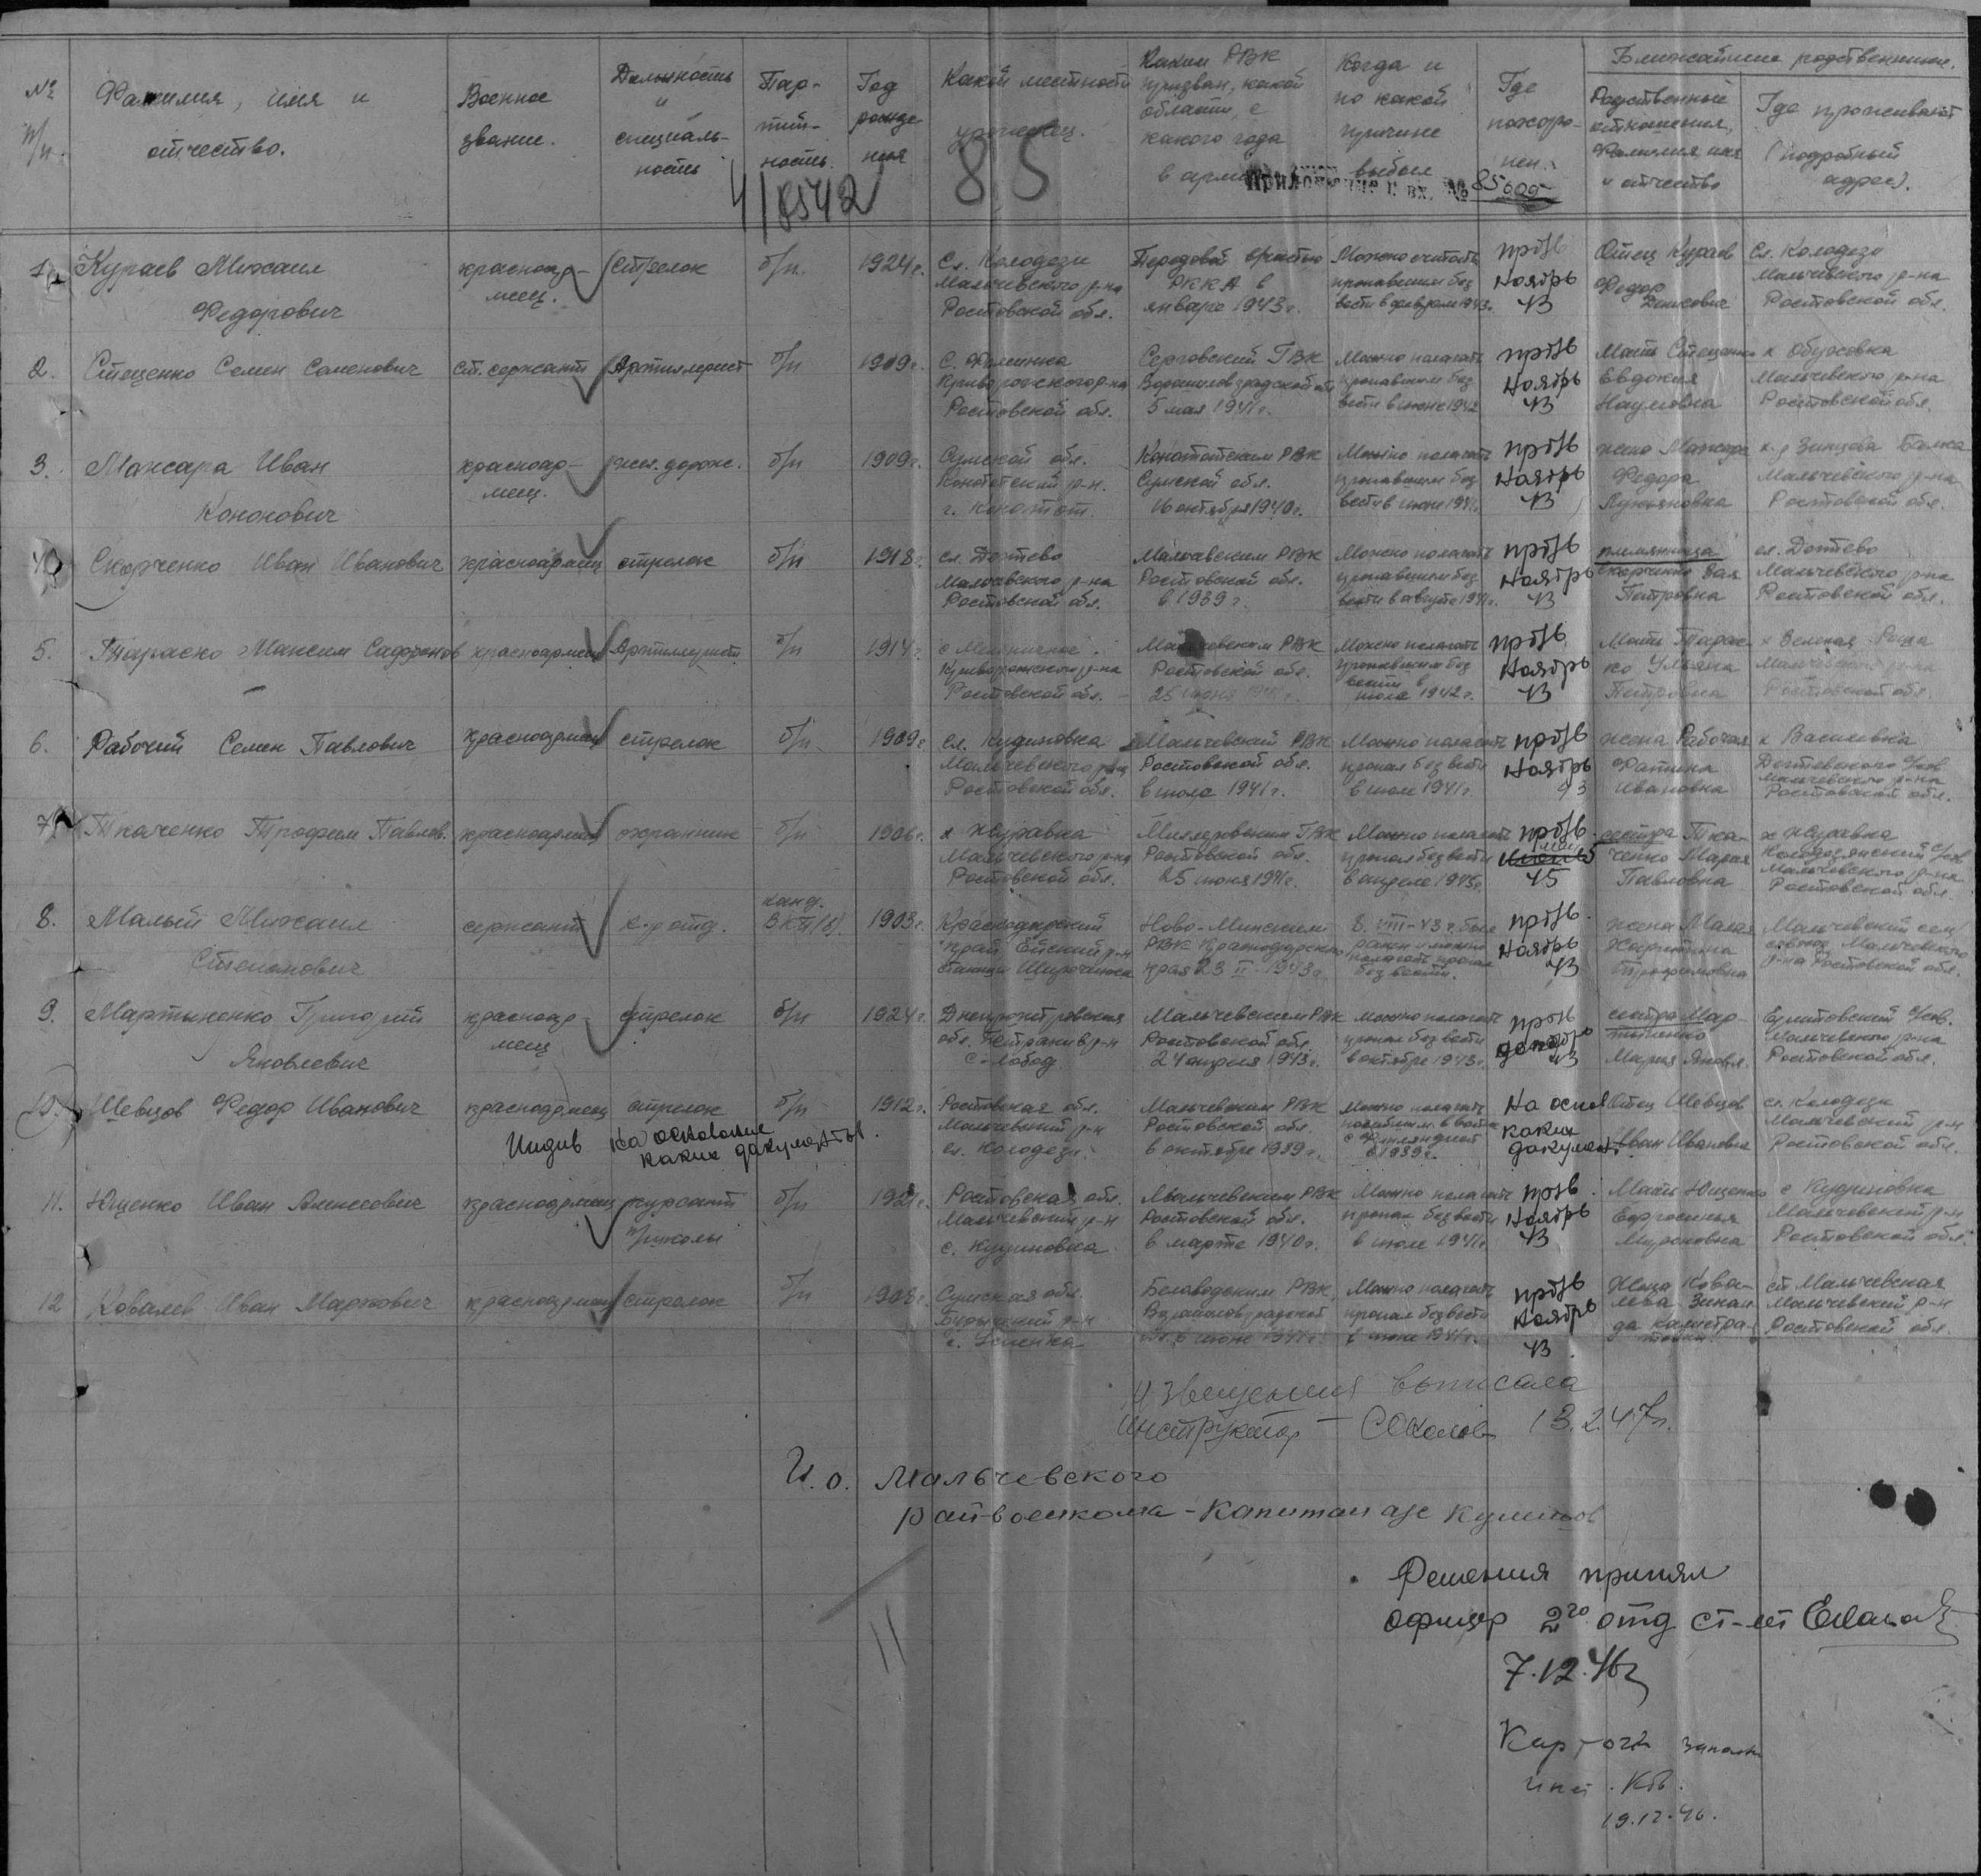 № п/п.
Фамилия, имя и отчество.
Военное звание.
Должность и специальность
Партийность.
Год рождения
Какой местности уроженец.
Каким РВК призван, какой области, с какого года в армии
Когда и по какой причине выбыл
Где похоронен.
Ближайшие родственники.
Родственные отношения, Фамилия, имя и отчество
Где проживают (подробный адрес).
85
Приложение к вх. №
1. Кураев Михаил Федорович
красноармеец.
Стрелок
б/п.
1924 г.
Сл. Колодези
Мальчевского р-на
Ростовской обл.
Передовой частью
РККА в
январе 1943 г.
Можно считать
пропавшим без
вести в феврале 1943 г.
пр б/в
ноябрь
43
Отец Кураев
Федор
Денисович
Сл. Колодези
Мальчевского р-на
Ростовской обл.
2. Стеценко Семен Семенович
Ст. сержант
Артиллерист
б/п
1909 г.
Криворожского р-на
Ростовской обл.
Ворошиловградской обл
5 мая 1941 г.
Можно полагать
пропавшим без
вести в июне 1942
пр б/в
ноябрь
43
Мать Стеценко
Евдокия
Наумовна
х Обуховка
Мальчевского р-на
Ростовской обл.
3. Мансара Иван
Кононович
красноармеец.
жел. дорож.
б/п
1909 г.
Сумской обл.
Конотопский р-н.
г. Конотоп.
Конотопским РВК
Сумской обл.
16 октября 1940 г.
Можно полагать
пропавшим без
вести в июне 1941 г.
пр б/в
ноябрь
43
жена
Лукьяновна
Мальчевского р-на
Ростовской обл.
4. Скорченко Иван Иванович
красноармеец
стрелок
б/п
1918 г.
сл. Дегтево
Мальчевского р-на
Ростовской обл.
Мальчевским РВК
Ростовской обл.
в 1939 г.
Можно полагать
пропавшим без
вести в августе 1941 г.
пр б/в
ноябрь
43
племянница
Скорченко
Петровна
сл. Дегтево
Мальчевского р-на
Ростовской обл.
5. Тараско Максим
красноармеец
Артиллерист
б/п
1914 г.
Криворожского р-на
Ростовской обл.
Мальчевским РВК
Ростовской обл.
Можно полагать
пропавшим без
вести в
июле 1942 г.
пр б/в
ноябрь
43
Мать Тарас-
ко Ульяна
Петровна
х Зеленая Роща
Мальчевского р-на
Ростовской обл.
6. Рабочий Семен Павлович
красноармеец
стрелок
б/п.
1909 г.
сл. Кудиновка
Мальчевского р-на
Ростовской обл.
Мальчевский РВК
Ростовской обл.
в июле 1941 г.
Можно полагать
пропал без вести
в июле 1941 г.
пр б/в
ноябрь
43
жена Рабочая
Ивановна
х Василевка
Дегтевского с/сов
Мальчевского р-на
Ростовской обл.
7. Ткаченко Трофим Павлов.
красноармеец
охранник
б/п
1906 г.
х Журавка
Мальчевского р-на
Ростовской обл.
Миллеровским РВК
Ростовской обл.
25 июня 1941 г.
Можно полагать
пропал без вести
в апреле 1945 г.
пр б/в.
май
45
сестра Тка-
ченко Мария
Павловна
х Журавка
Колодезянский с/сов
Мальчевского р-на
Ростовской обл.
8. Малый Михаил
Степанович
сержант
к-р отд.
канд.
ВКП(б).
1903 г.
Краснодарский
край Ейский р-н
Ново-Минским
РВК Краснодарского
края 23 II-1943 г.
8.VIII-43 г. был
ранен и можно
полагать пропал
без вести.
пр б/в.
ноябрь
43
жена Малая
Трофимовна
Мальчевский сем/
совхоз Мальчевского
р-на Ростовской обл.
9. Мартыненко Григорий
Яковлевич
красноармеец
стрелок
б/п
1924 г.
Днепропетровская
обл.
Мальчевским РВК
Ростовской обл.
24 апреля 1943 г.
можно полагать
пропал без вести
в октябре 1943 г.
пр б/в
декабрь
43
сестра Мар-
тыненко
Мария Яковл.
Мальчевского р-на
Ростовской обл.
10. Шевцов Федор Иванович
красноармеец
стрелок
б/п
1912 г.
Ростовская обл.
Мальчевский р-н
сл. Колодези.
Мальчевским РВК
Ростовской обл.
в октябре 1939 г.
можно полагать
погибшим в войне
с Финляндией
в 1939 г.
На основ
каких
документ.
Отец Шевцов
Иван Иванович
сл. Колодези
Мальчевский р-н
Ростовской обл.
Индив на основание
каких документов.
11. Ющенко Иван Алексеевич
красноармеец
курсант
п/школы
б/п
Ростовская обл.
Мальчевский р-н
с. Кудиновка
Мальчевским РВК
Ростовской обл.
в марте 1940 г.
Можно полагать
пропал без вести
в июле 1941 г.
пр б/в.
ноябрь
43
Мать Ющенко
Ефросинья
Мироновна
с Кудиновка
Мальчевский р-н
Ростовской обл.
12 Ковалев Иван Маркович
красноармеец
стрелок
б/п
1908 г.
Сумская обл.
Беловодским РВК
Ворошиловградской
Можно полагать
пропал без вести
в июне 1941 г.
пр б/в
ноябрь
43
Жена Кова-
лева Зинаи-
да
ст. Мальчевская
Мальчевский р-н
Ростовской обл.
Извещения выписала
инструктор – Соколов 13.2.47 г.
И.о. Мальчевского
райвоенкома – капитан а/с Куликов
Решения принял
офицер 2го отд ст-лт
7.12.46 г
11
19.12.46.